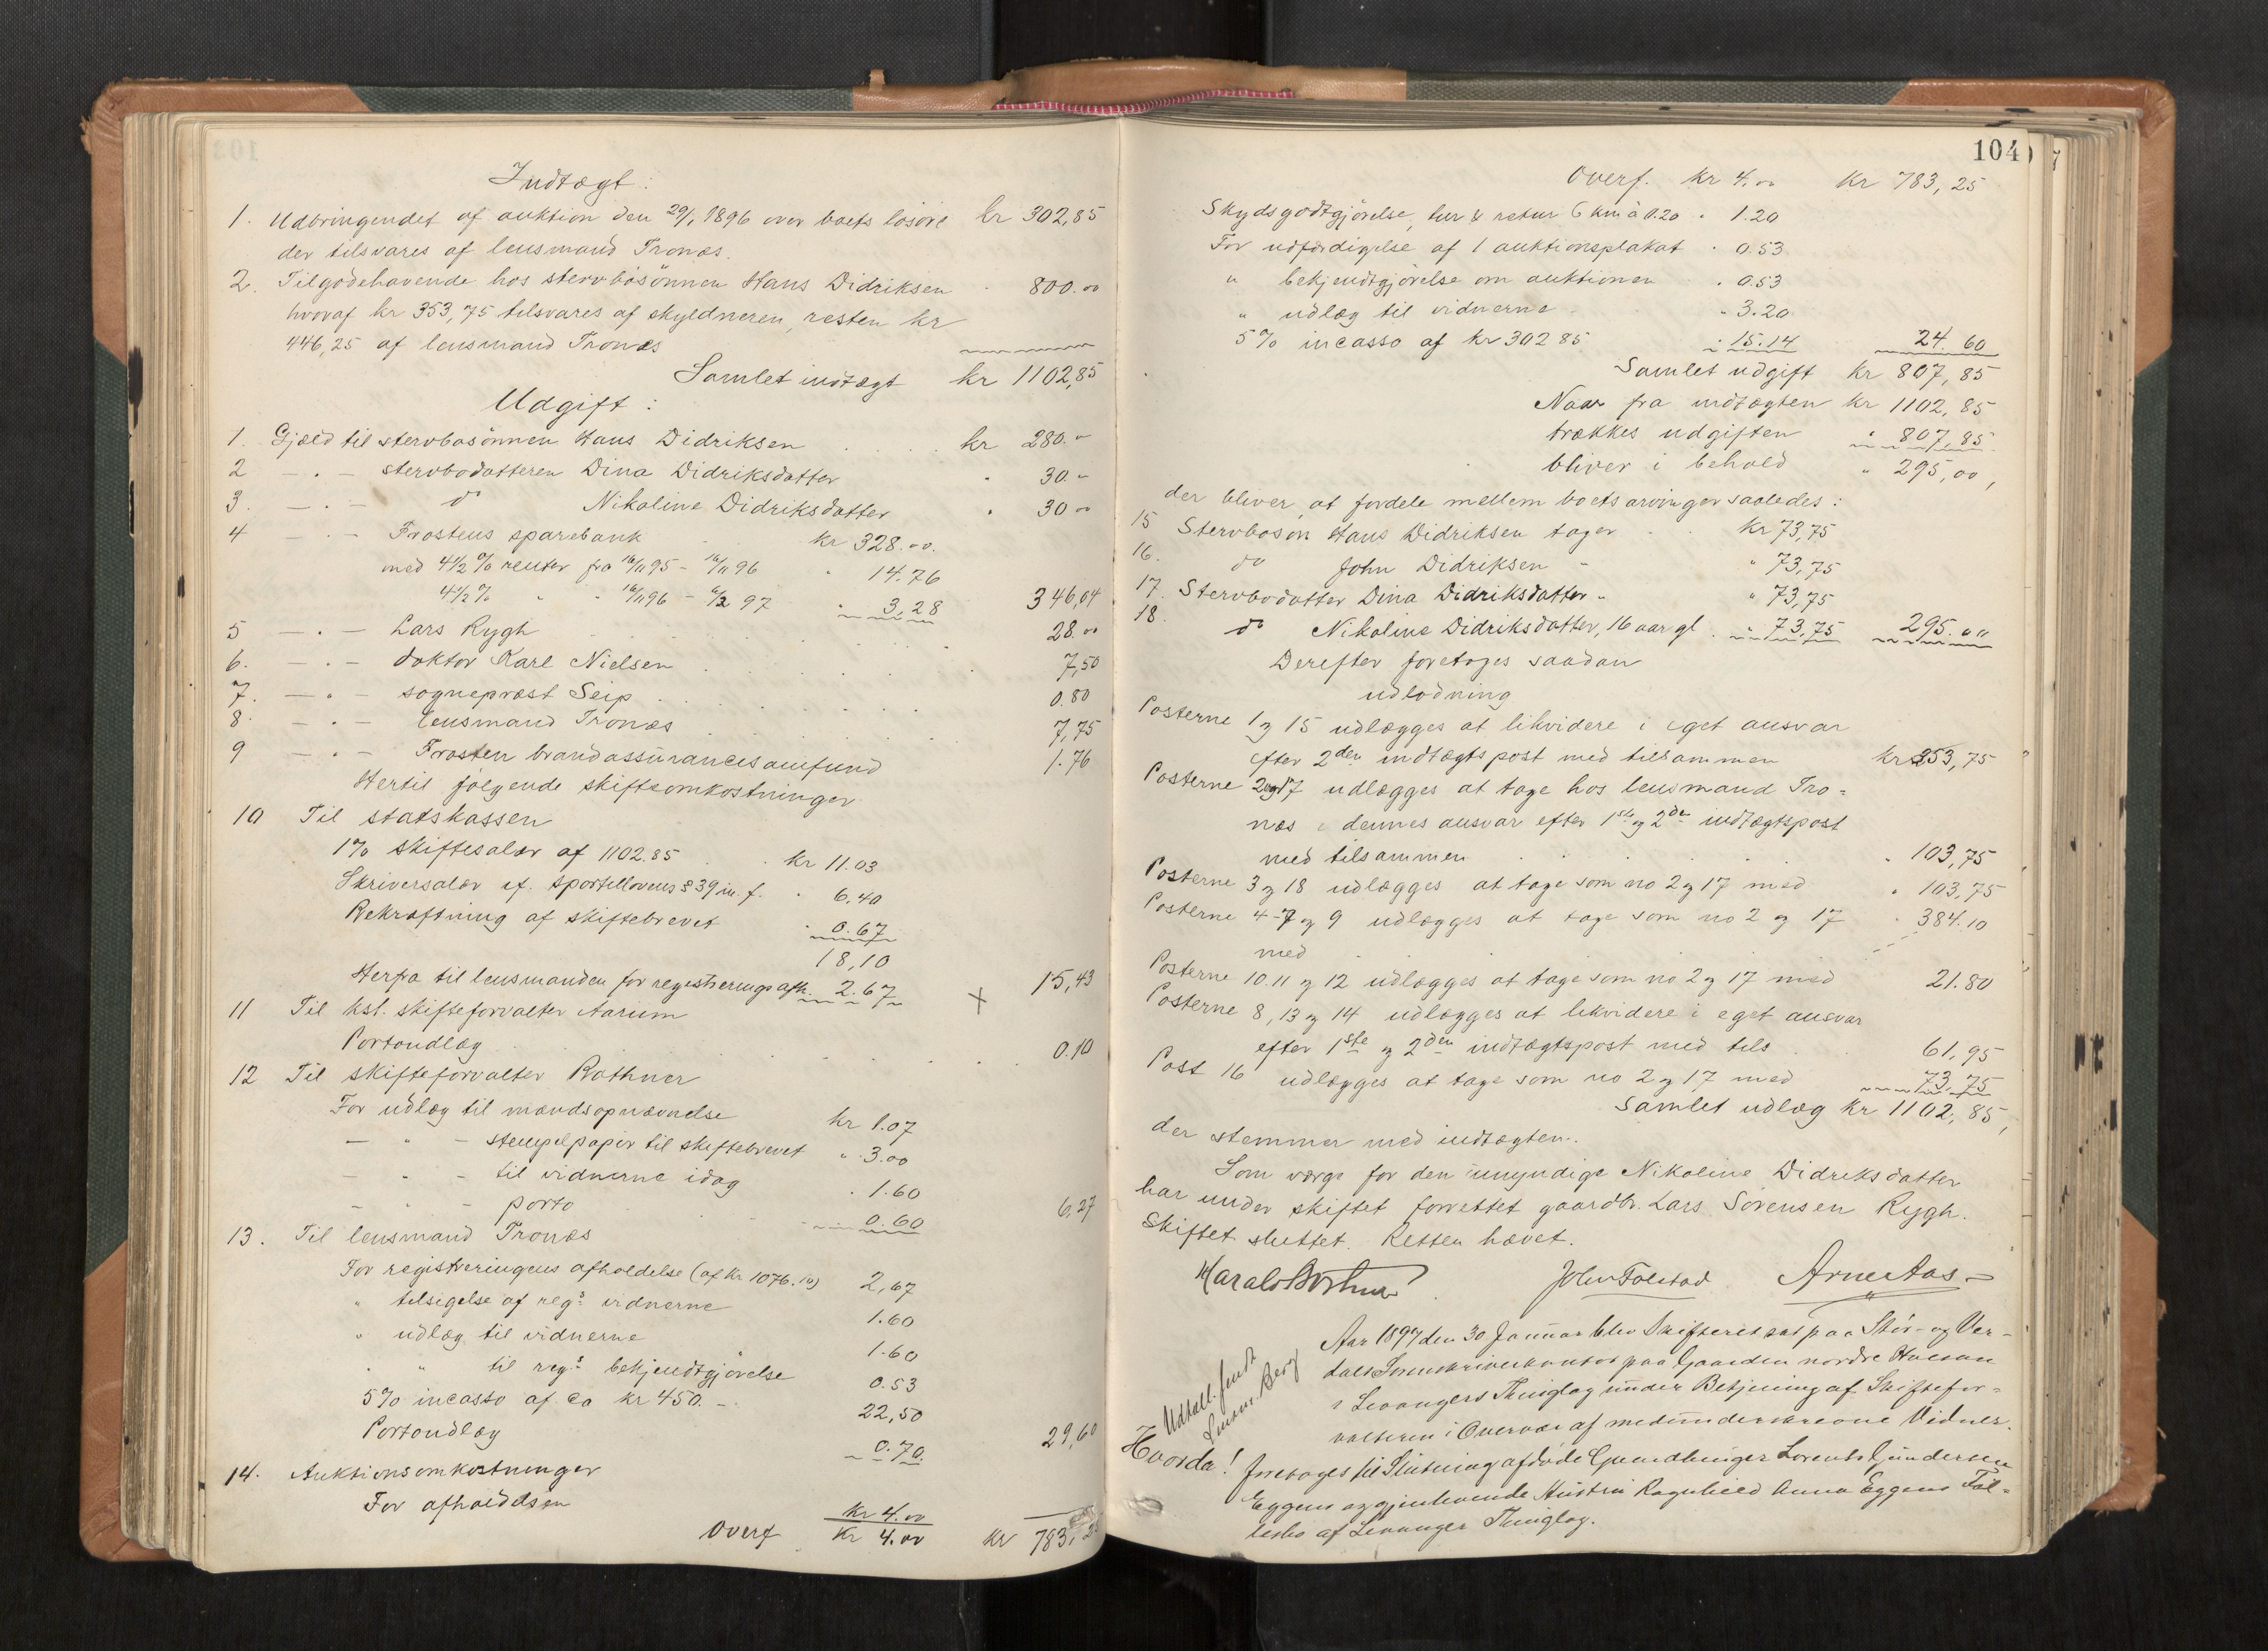 Indtægt:
1. Udbringendet af auktion den 29/1 1896 over boets løsøre kr 302,85
der tilsvares af lensmand Tronæs.
2. Tilgodehavende hos stervbosønnen Hans Didriksen 800.00
hvoraf kr 353,75 tilsvares af skyldneren, resten kr
446,25 af lensmand Tronæs
Samlet indtægt kr 1102,85
Udgift:
1. Gjæld til stervbosønnen Hans Didriksen kr 280.-
2 - " - stervbodatteren Dina Didriksdatter " 30.-
3. - " - do Nikoline Didriksdatter " 30 00
4 - " - Frostens sparebank kr 328.00.
med 4 1/2 % renter fra 16/11 95 - 16/11 96 " 14.76
4 1/2 % " " 16/11 96 - 6/2 97 " 3,28 346,04
5 - " - Lars Rygh 28.00
6. - " - doktor Karl Nielsen 7,50
7. - " - sogneprest Seip 0.80
8. - " - lensmand Tronæs 7,75
9 - " - Frosten brandassurancesamfund 1.76
Hertil følgende skifteomkostninger
10 Til statskassen
1% skiftesalær af 1102.85 kr 11.03
Skriversalær cf. sportellovens § 39 in. f. " 6.40
Bekræftning af skiftebrevet " 0.67
18,10
Herfra til lensmanden for registrerings afh. 2.67 15,43
11 Til kst. skifteforvalter Aarum
Portoudlæg 0.10
12 Til skifteforvalter Bothner
For udlæg til mændsopnævnelse kr 1.07
- " - stempelpapir til skiftebrevet " 3.00
- " - til vidnerne idag " 1.60
- " - porto 0.60 6,27
13. Til lensmand Tronæs
For registreringens afholdelse (af kr 1076.10) 2,67
" tilsigelse af regs vidnerne 1.60
" udlæg til vidnerne 1.60
" " til regs bekjendtgjørelse 0.53
5% incasso af ca kr 450.- 22,50
Portoudlæg 0.70. 29,60
14. Auktionsomkostninger
For afholdelsen kr 4.00
Overf kr 4.00 kr 783,25
104
Overf. kr 4.00 kr 783,25
Skydsgodtgjørelse, hur & retur 6 km à 0.20 " 1.20
For udfærdigelse af 1 auktionsplakat " 0.53
" bekjendtgjørelse om auktionen " 0.53
" udlæg til vidnerne " 3.20
5% incasso af kr 302 85 " 15.14 24.60
Samlet udgift kr 807,85
Naar fra indtægten kr 1102,85
trækkes udgiften " 807,85
bliver i behold " 295,00,
der bliver at fordele mellem boets arvinger saaledes:
15 Stervbosøn Hans Didriksen tager kr 73,75
16. do John Didriksen - " 73,75
17. Stervbodatter Dina Didriksdatter - " 73,75
18. do Nikoline Didriksdatter, 16 aar gl. " 73,75 295.00
Derefter foretages saadan
udlodning
Posterne 1 og 15 udlægges at likvidere i eget ansvar
efter 2den indtægtspost med tilsammen kr 353,75
Posterne 2 og 17 udlægges at tage hos lensmand Tro=
næs i dennes ansvar efter 1ste og 2den indtægtspost
med tilsammen " 103,75
Posterne 3 og 18 udlægges at tage som no 2 og 17 med " 103,75
Posterne 4-7 og 9 udlægges at tage som no 2 og 17 " 384.10
med
Posterne 10.11 og 12 udlægges at tage som no 2 og 17 med 21.80
Posterne 8, 13 og 14 udlægges at likvidere i eget ansvar
efter 1ste og 2den indtægtspost med tils. 61,95
Post 16 udlægges at tage som no 2 og 17 med 73,75
Samlet udlæg kr 1102,85,
der stemmer med indtægten.
Som værge for den umyndige Nikoline Didriksdatter
har under skiftet forrettet gaardbr. Lars Sørensen Rygh.
Skiftet sluttet. Retten hævet.
Harald Bothner John Folstad Arne Aas
Aar 1897 den 30 Januar blev Skifteret sat paa Stør- og Ver-
dals Sorenskriverkontor paa Gaarden nordre
i Levangers Thinglag under Betjening af Skiftefor=
valteren i Overvær af medunderskrevne Vidner.
Udtall. sendt
Lensm. Berg
Hvorda! foretoges til Slutning afdøde Gaardbruger Lorents Gundersen
Eggens og gjenlevende Hustru Ragnhild Anna Eggens Fæl=
lesbo af Levanger Thinglag.